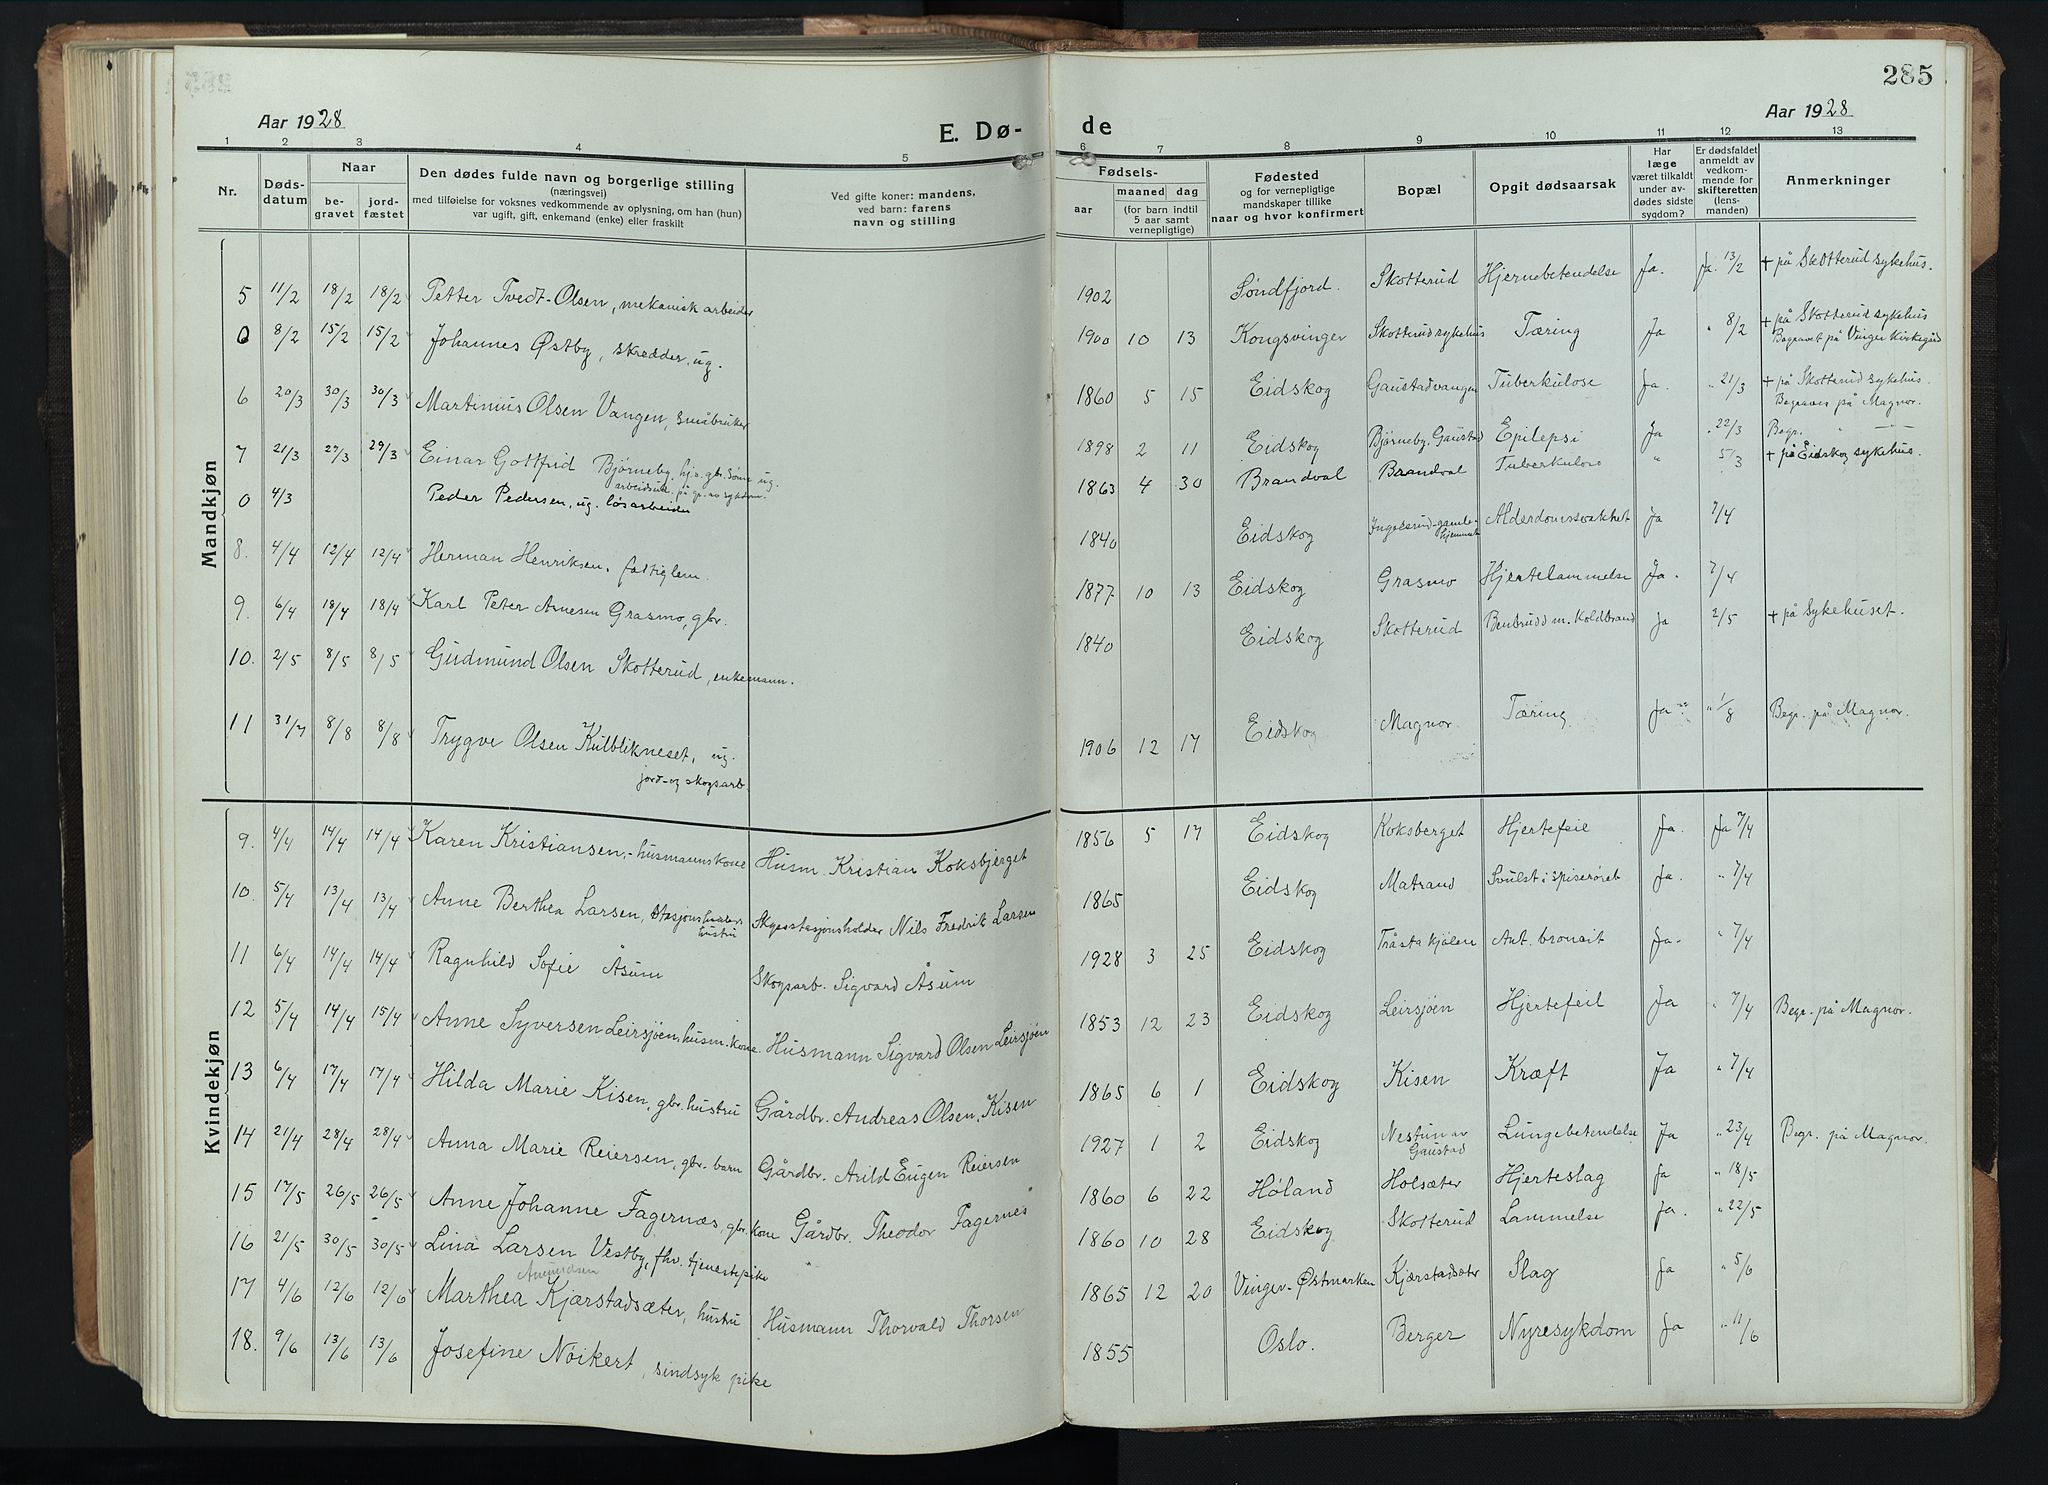 285
Aar 1928
E. Dø-
de
Aar 1928
1 2 3 4 5 6 7 8 9 10 11 12 13
Nr.
Døds-
datum
Naar
be-
gravet
jord-
fæstet
Den dødes fulde navn og borgerlige stilling
(næringsvei)
med tilføielse for voksnes vedkommende av oplysning, om han (hun)
var ugift, gift, enkemand (enke) eller fraskilt
Ved gifte koner: mandens,
ved barn: farens
navn og stilling
Fødsels-
aar
maaned dag
(for barn indtil
5 aar samt
vernepligtige)
Fødested
og for vernepligtige
mandskaper tillike
naar og hvor konfirmert
Bopæl
Opgit dødsaarsak
Har
læge
været tilkaldt
under av-
dødes sidste
sygdom?
Er dødsfaldet
anmeldt av
vedkom-
mende for
skifteretten
(lens-
manden)
Anmerkninger
Mandkjøn
5 11/2 18/2 18/2 Petter Tvedt-Olsen, mekanisk arbeider 1902 Søndfjord. Skotterud Hjernebetendelse Ja. Ja. 13/2 + på Skotterud sykehus.
0 8/2 15/2 15/2 Johannes Østby, skredder, ug. 1900 10 13 Kongsvinger Skotterud sykehus Tæring Ja " 8/2 + på Skotterud sykehus
Begravet på Vinger kirkegård
6 20/3 30/3 30/3 Martinius Olsen Vangen, småbruker 1860 5 15 Eidskog Gaustadvangen Tuberkulose Ja. " 21/3 + på Skotterud sykehus.
Begraves på Magnor.
7 21/3 27/3 29/3 Einar Gottfrid Bjørneby, hj.v. gbr. sønn ug. 1898 2 11 Eidskog Bjørneby, Gaustad Epilepsi Ja " 22/3 Begr. " —
arbeidsud. på gr. av sykdom.
0 4/3 Peder Pedersen, ug. løsarbeider 1863 4 30 Brandval Brandval Tuberkulose " 5/3 + på Eidskog sykehus.
8. 4/4 12/4 12/4 Herman Henriksen, fattiglem. 1840 Eidskog Ingelsrud-gamle-
hjemmet Alderdomssvakhet Ja 7/4
9. 6/4 18/4 18/4 Karl Peter Arnesen Grasmo, gbr. 1877 10 13 Eidskog Grasmo Hjertelammelse Ja. 7/4
10. 2/5 8/5 8/5 Gudmund Olsen Skotterud, enkemann. 1840 Eidskog Skotterud Benbrudd m. Koldbrand Ja 2/5 + på Sykehuset.
11 31/7 8/8 8/8 Trygve Olsen Kulblikneset, ug. 1906 12 17 Eidskog Magnor Tæring Ja " 1/8 Begr. på Magnor.
jord- og skogsarb.
Kvindekjøn
9. 4/4 14/4 14/4 Karen Kristiansen, - husmannskone Husm. Kristian Koksbjerget 1856 5 17 Eidskog Koksberget Hjertefeil Ja. Ja 7/4
10. 5/4 13/4 13/4 Anne Berthea Larsen, stasjonsholders
hustru Skysstasjonsholder Nils Fredrik Larsen 1865 Eidskog Matrand Svulst i spiserøret Ja. " 7/4
11 6/4 14/4 14/4 Ragnhild Sofie Åsum Skogsarb. Sigvard Åsum 1928 3 25 Eidskog Tråstakjølen Ant. bronait Ja. " 7/4
12 5/4 14/4 15/4 Anne Syversen Leirsjöen, husm. kone. Husmann Sigvard Olsen Leirsjöen 1853 12 23 Eidskog Leirsjöen Hjertefeil Ja " 7/4 Begr. på Magnor.
13 6/4 17/4 17/4 Hilda Marie Kisen, gbr. hustru Gårdbr. Andreas Olsen, Kisen 1865 6 1 Eidskog Kisen Kræft Ja " 7/4
14 21/4 28/4 28/4 Anna Marie Reiersen, gbr. barn Gårdbr. Arild Eugen Reiersen 1927 1 2 Eidskog Nestun av
Gaustad Lungebetendelse Ja " 23/4 Begr. på Magnor.
15 17/5 26/5 26/5 Anne Johanne Fagernæs, gbr. kone Gårdbr. Theodor Fagernes 1860 6 22 Høland Holsæter Hjerteslag Ja " 18/5
16 21/5 30/5 30/5 Lina Larsen Vestby, fhv. tjenestepike " 1860 10 28 Eidskog Skotterud Lammelse Ja. " 22/5
17 4/6 12/6 12/6 Marthea Kjærstadsæter, hustru Husmann Thorvald Thorsen 1865 12 20 Vinger-Østmarken Kjærstadsæter Slag Ja " 5/6
18. 9/6 13/6 13/6 Josefine Nöikert, sindsyk pike 1855 Oslo. Berger Nyresykdom Ja " 11/6